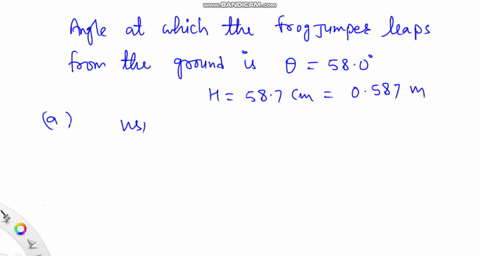 WWW.BANDICAM.COM
Angle at which the frogjumper leaps
from the ground is θ = 58.0°
H = 58.7 cm = 0.587 m
(a)